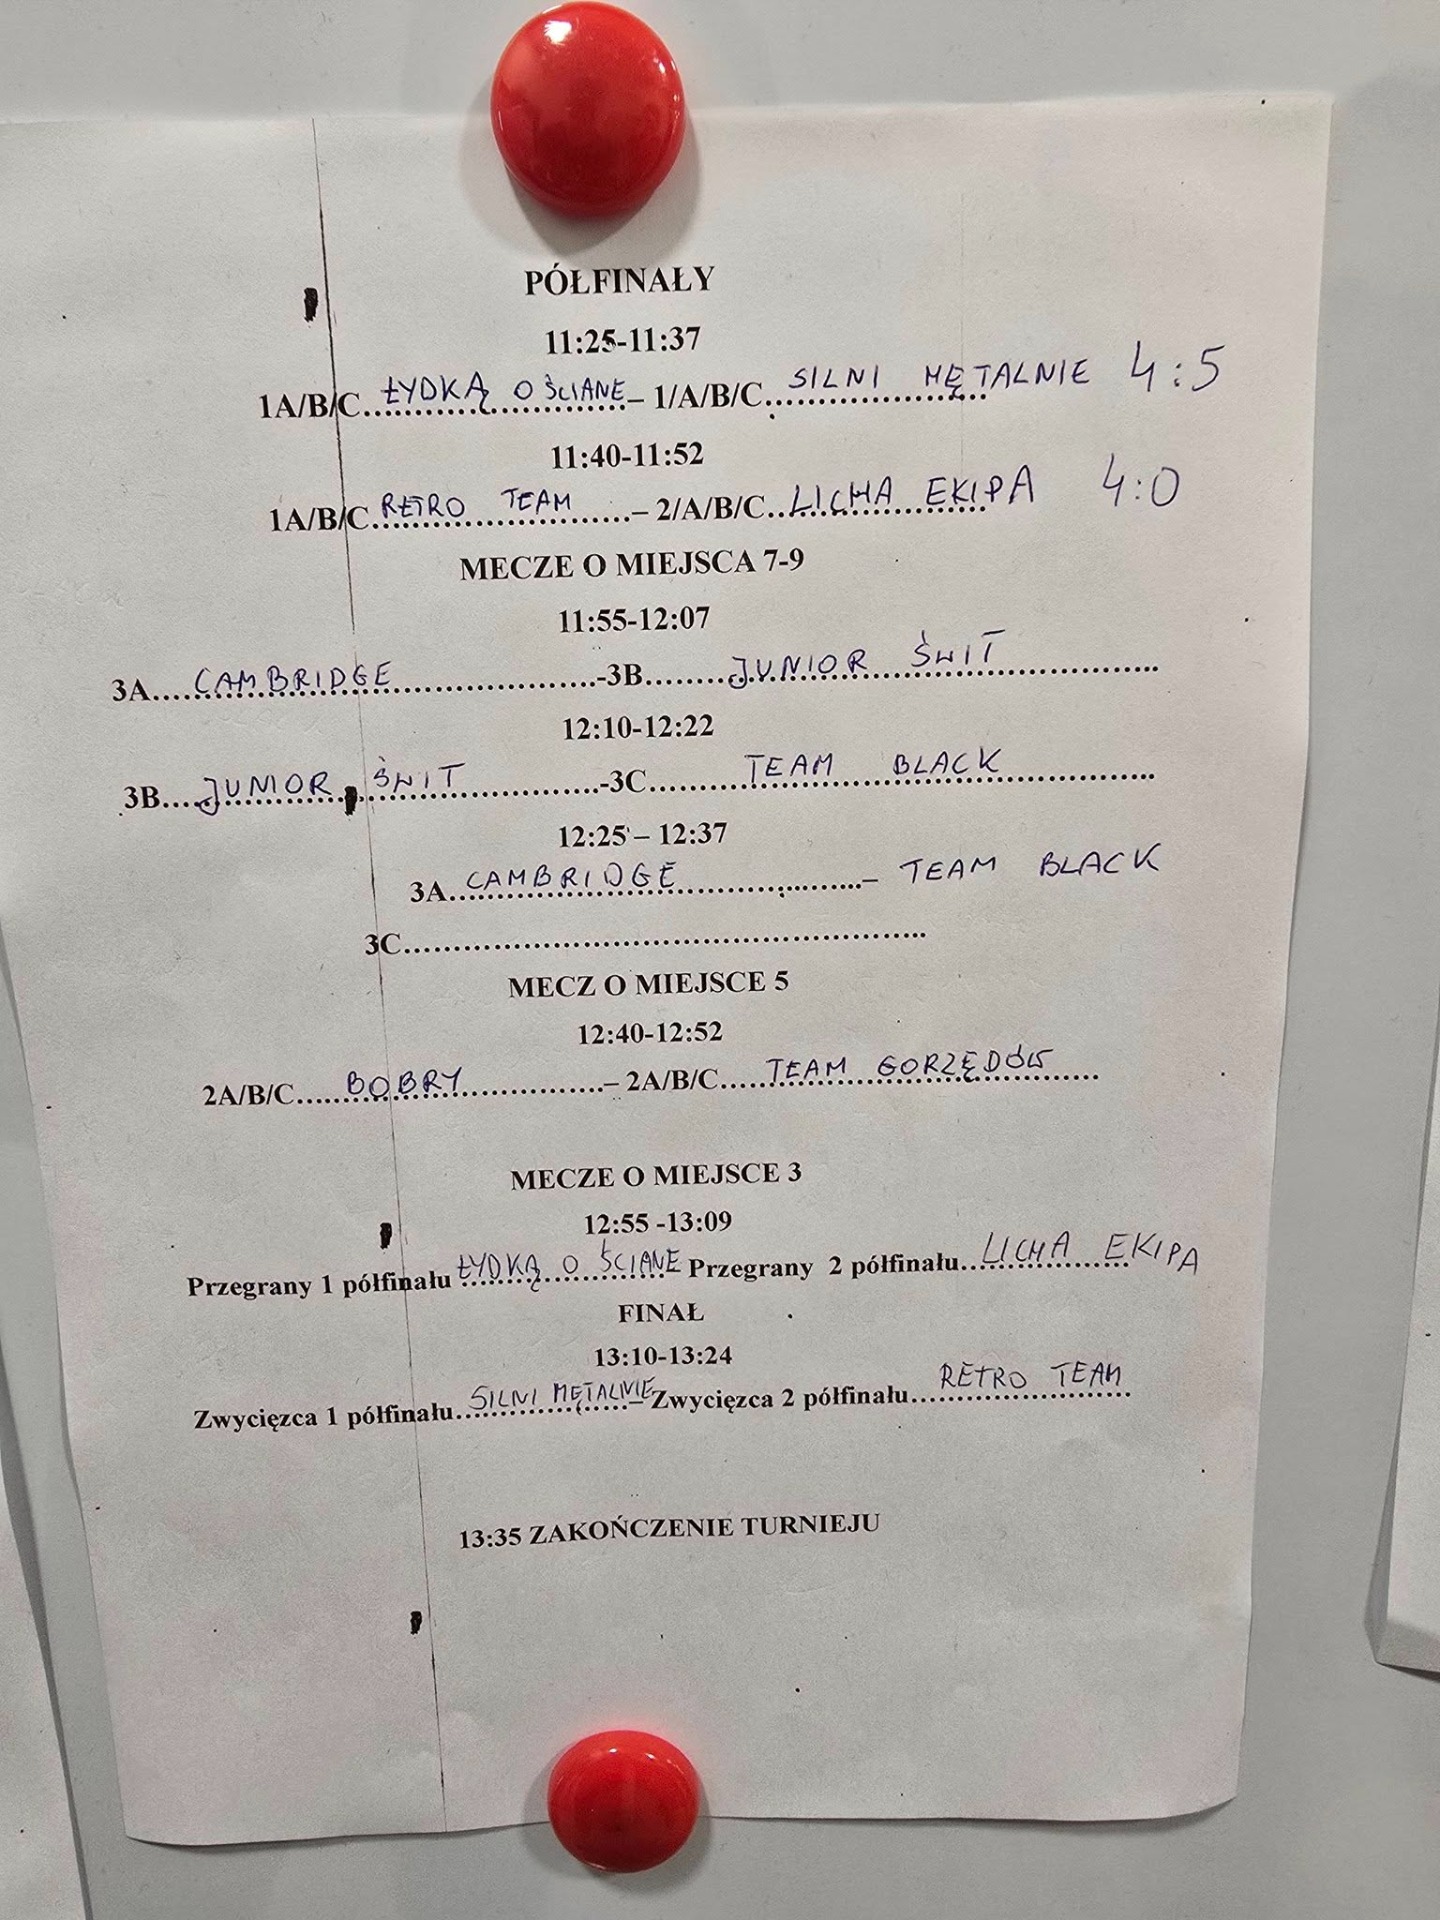 PÓŁFINAŁY
11:25-11:37
1A/B/C ŁYDKĄ O ŚCIANE – 1/A/B/C SILNI MĘTALNIE 4:5
11:40-11:52
1A/B/C RETRO TEAM – 2/A/B/C LICHA EKIPA 4:0
MECZE O MIEJSCA 7-9
11:55-12:07
3A CAMBRIDGE -3B JUNIOR ŚWIT
12:10-12:22
3B JUNIOR ŚWIT -3C TEAM BLACK
12:25 – 12:37
3A CAMBRIDGE – TEAM BLACK
3C
MECZ O MIEJSCE 5
12:40-12:52
2A/B/C BOBRY – 2A/B/C TEAM GORZĘDÓW
MECZE O MIEJSCE 3
12:55 -13:09
Przegrany 1 półfinału ŁYDKĄ O ŚCIANE Przegrany 2 półfinału LICHA EKIPA
FINAŁ
13:10-13:24
Zwycięzca 1 półfinału SILNI MĘTALNIE – Zwycięzca 2 półfinału RETRO TEAM
13:35 ZAKOŃCZENIE TURNIEJU